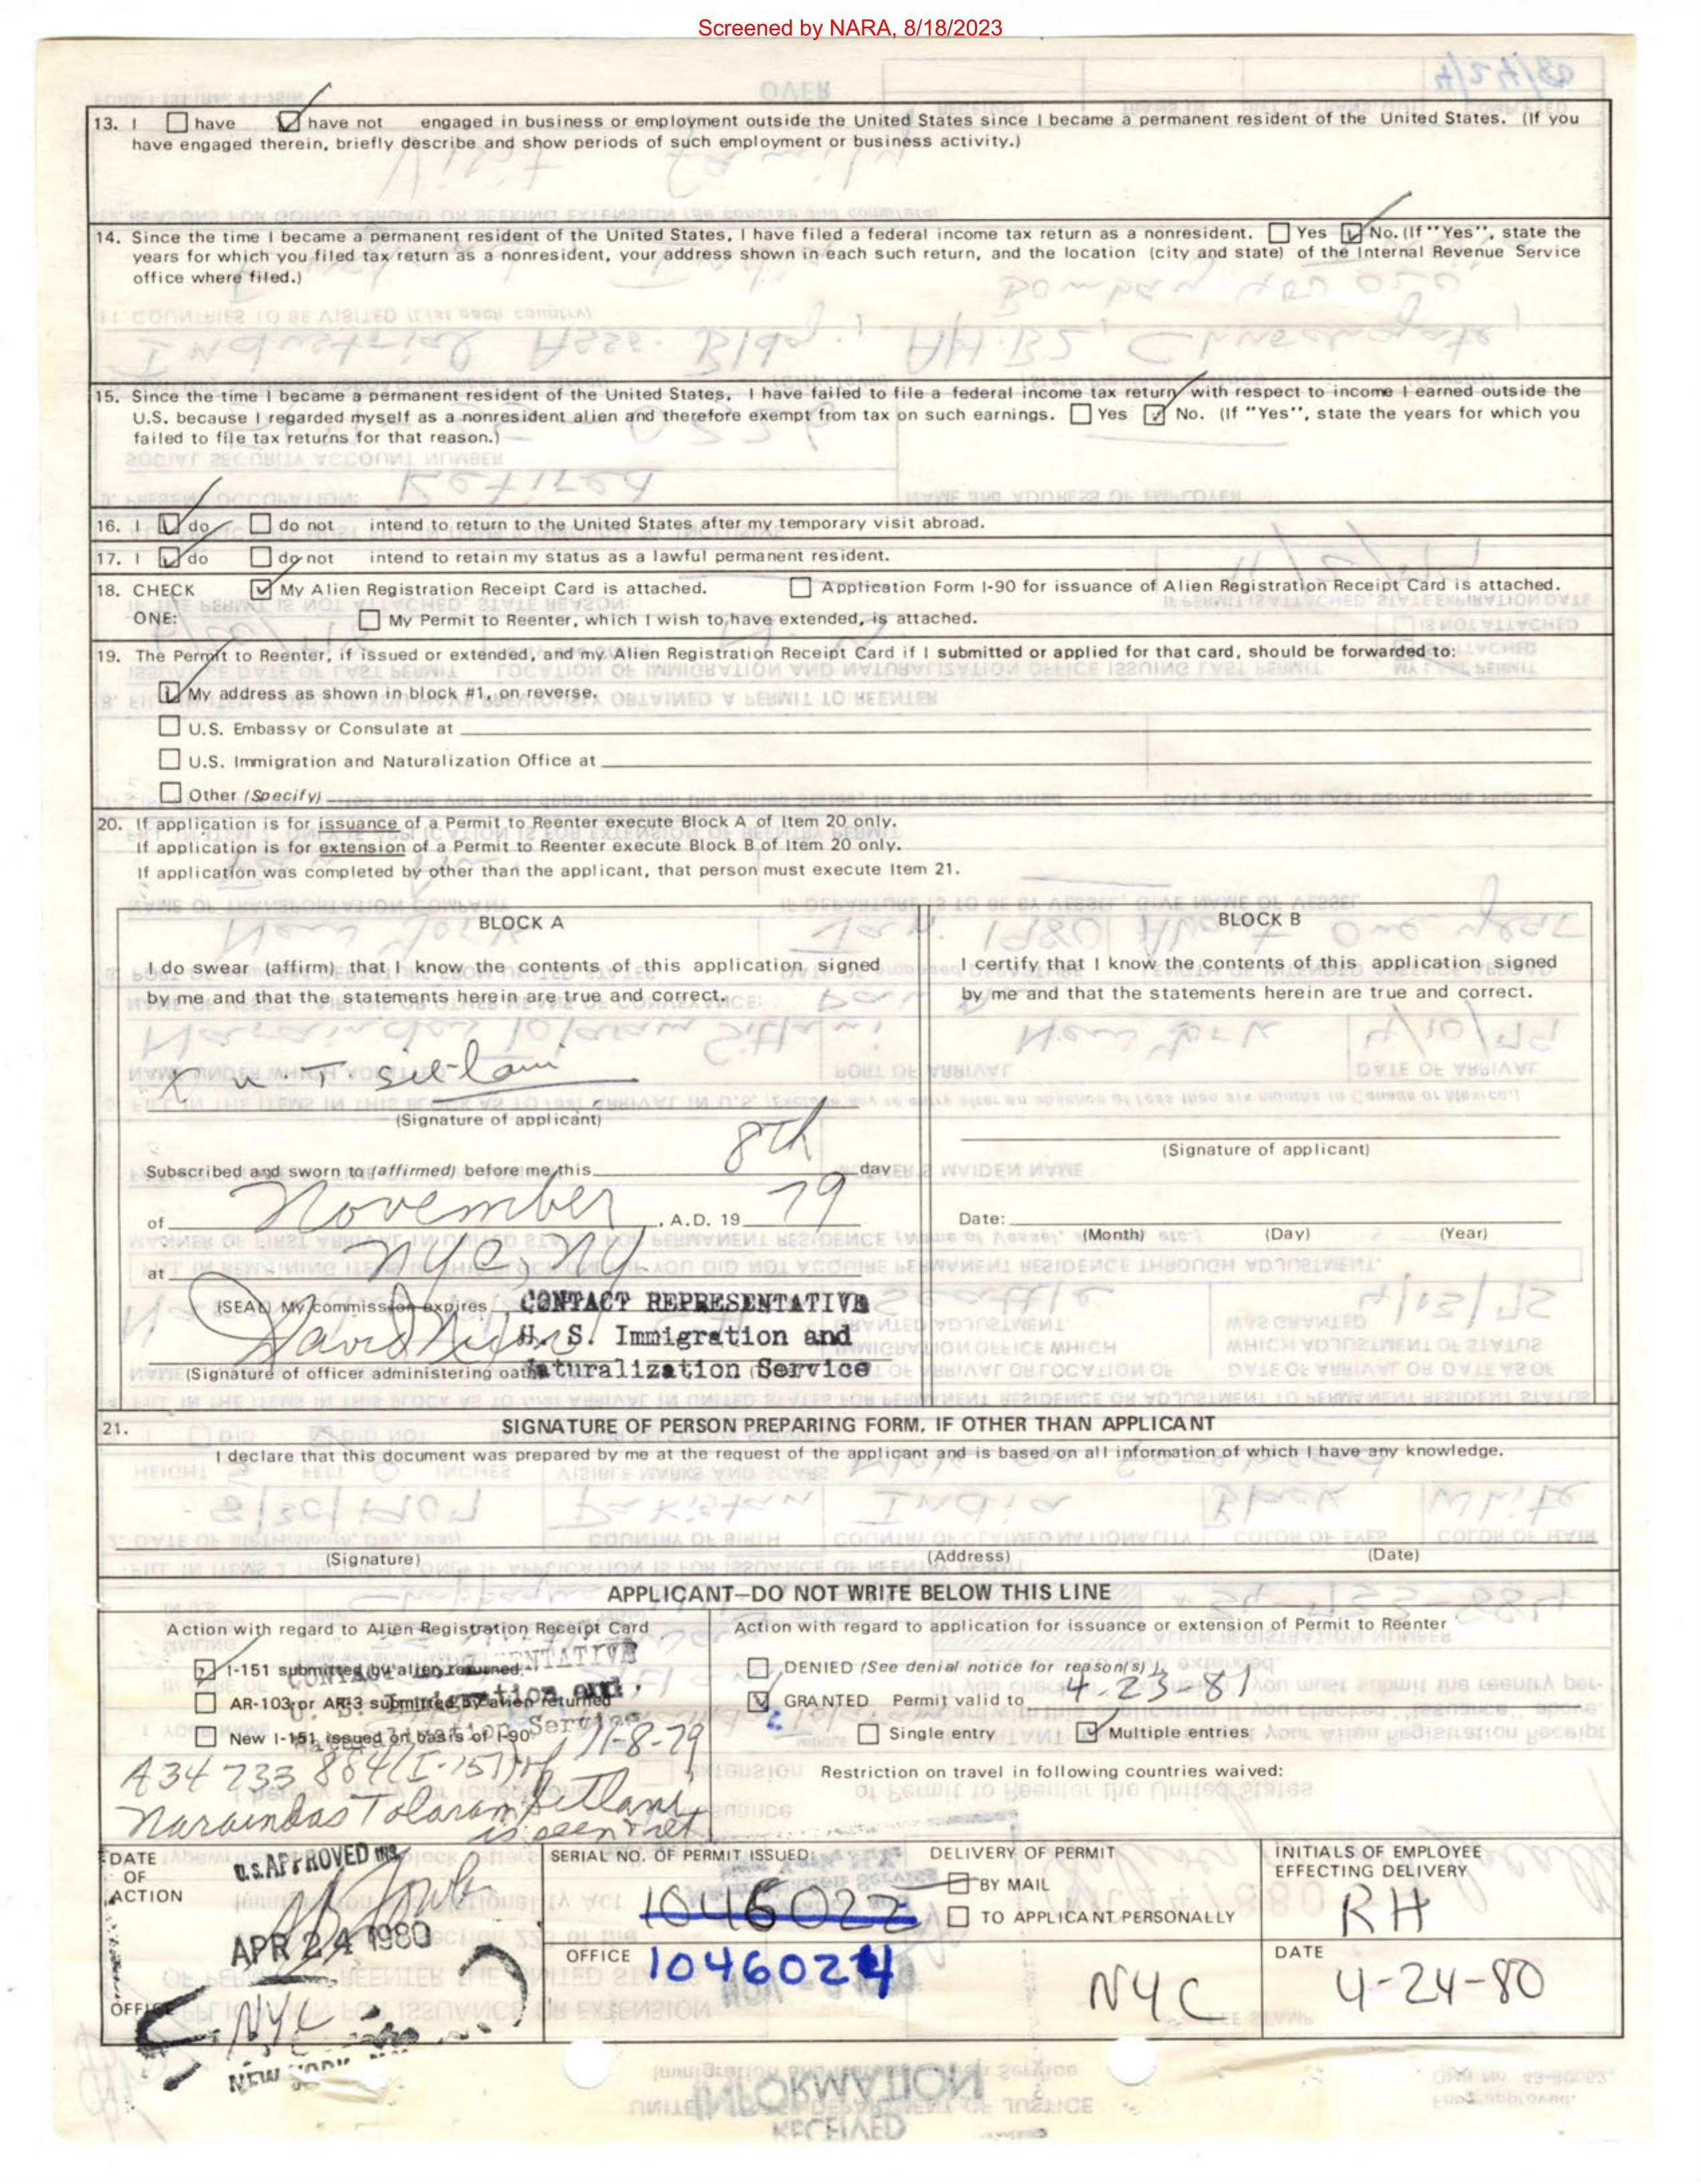 Screened by NARA, 8/18/2023
13. I have have not engaged in business or employment outside the United States since I became a permanent resident of the United States. (If you
have engaged therein, briefly describe and show periods of such employment or business activity.)
14. Since the time I became a permanent resident of the United States, I have filed a federal income tax return as a nonresident. Yes No. (If "Yes", state the
years for which you filed tax return as a nonresident, your address shown in each such return, and the location (city and state) of the Internal Revenue Service
office where filed.)
15. Since the time I became a permanent resident of the United States, I have failed to file a federal income tax return with respect to income I earned outside the
U.S. because I regarded myself as a nonresident alien and therefore exempt from tax on such earnings. Yes No. (If "Yes", state the years for which you
failed to file tax returns for that reason.)
16. I do do not intend to return to the United States after my temporary visit abroad.
17. I do do not intend to retain my status as a lawful permanent resident.
18. CHECK My Alien Registration Receipt Card is attached. Application Form I-90 for issuance of Alien Registration Receipt Card is attached.
ONE: My Permit to Reenter, which I wish to have extended, is attached.
19. The Permit to Reenter, if issued or extended, and my Alien Registration Receipt Card if I submitted or applied for that card, should be forwarded to:
My address as shown in block #1, on reverse.
U.S. Embassy or Consulate at
U.S. Immigration and Naturalization Office at
Other (Specify)
20. If application is for issuance of a Permit to Reenter execute Block A of Item 20 only.
If application is for extension of a Permit to Reenter execute Block B of Item 20 only.
If application was completed by other than the applicant, that person must execute Item 21.
BLOCK A
I do swear (affirm) that I know the contents of this application signed
by me and that the statements herein are true and correct.
X N. T. Sitlani
(Signature of applicant)
Subscribed and sworn to (affirmed) before me this 8th day
of November, A.D. 19 79
at NYC, NY
(SEAL) My commission expires CONTACT REPRESENTATIVE
U. S. Immigration and
(Signature of officer administering oath) Naturalization Service
BLOCK B
I certify that I know the contents of this application signed
by me and that the statements herein are true and correct.
(Signature of applicant)
Date:
(Month) (Day) (Year)
21. SIGNATURE OF PERSON PREPARING FORM, IF OTHER THAN APPLICANT
I declare that this document was prepared by me at the request of the applicant and is based on all information of which I have any knowledge.
(Signature) (Address) (Date)
APPLICANT—DO NOT WRITE BELOW THIS LINE
Action with regard to Alien Registration Receipt Card
I-151 submitted by alien returned.
AR-103 or AR-3 submitted by alien returned
New I-151 issued on basis of I-90
11-8-79
A34 733 884 (I-151) of
Naraindas Tolaram Sitlani
is seen & ret
Action with regard to application for issuance or extension of Permit to Reenter
DENIED (See denial notice for reason(s).)
GRANTED Permit valid to 4-23-81
Single entry Multiple entries
Restriction on travel in following countries waived:
DATE
OF
ACTION
U.S. APPROVED INS
APR 24 1980
OFFICE
NYC
NEW YORK
SERIAL NO. OF PERMIT ISSUED:
1046022
OFFICE 1046024
DELIVERY OF PERMIT
BY MAIL
TO APPLICANT PERSONALLY
NYC
INITIALS OF EMPLOYEE
EFFECTING DELIVERY
RH
DATE
4-24-80